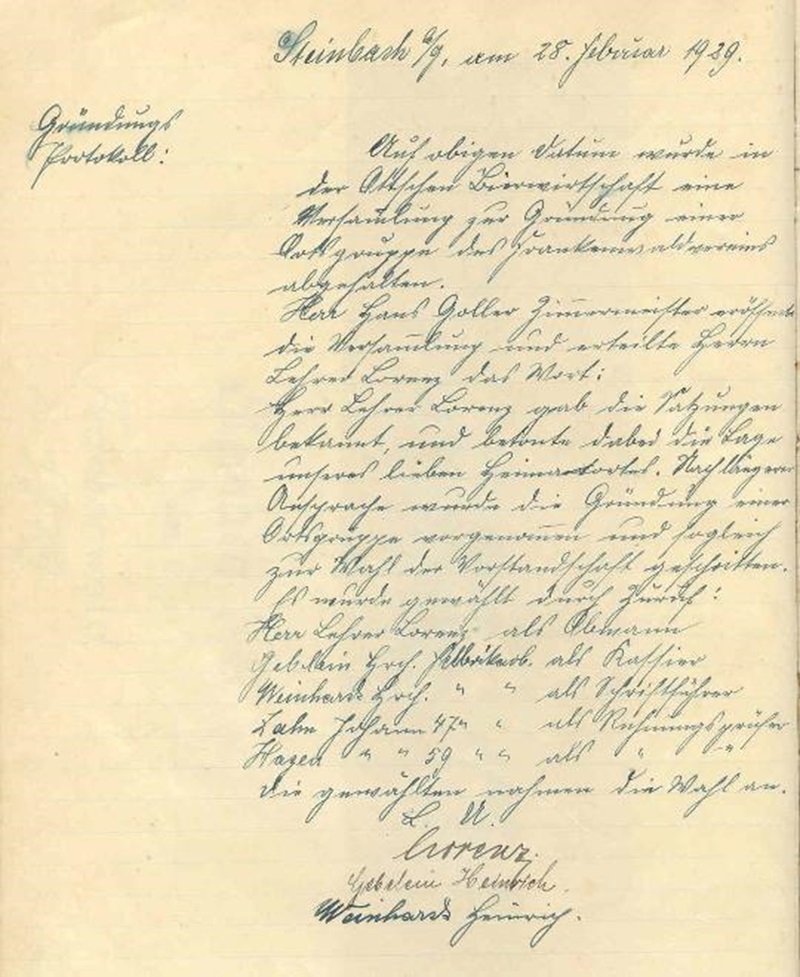 Steinbach a/W, am 28. Februar 1929.
Gründungs
Protokoll:
Auf obigen Datum wurde in
der Ottschen Bierwirtschaft eine
Versam̄lung zur Gründung einer
Ortsgruppe des Frankenwaldvereins
abgehalten.
Herr Hans Goller Zim̄ermeister eröffnete
die Versam̄lung und erteilte Herrn
Lehrer Lorenz das Wort:
Herr Lehrer Lorenz gab die Satzungen
bekannt, und betonte dabei die Lage
unseres lieben Heimatortes. Nach längerer
Ansprache wurde die Gründung einer
Ortsgruppe vorgenom̄en und sogleich
zur Wahl der Vorstandschaft geschritten.
Es wurde gewählt durch Zuruf:
Herr Lehrer Lorenz als Obmann
Gebelein Hrch. als Kassier
Weinhardt Hrch. " " als Schriftführer
Zahn Johann 47 " " als Rechnungsprüfer
Hagen " " 59 " " als " "
die gewählten nahmen die Wahl an.
Lorenz.
Gebelein Heinrich.
Weinhardt Heinrich.